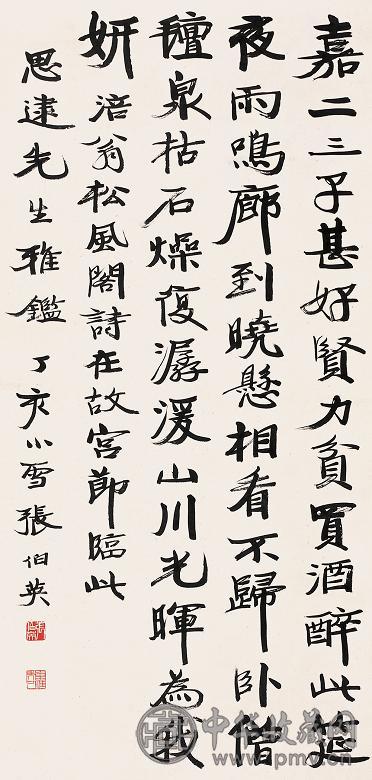 嘉二三子甚好賢力貧買酒醉此筵
夜雨鳴廊到曉懸相看不歸臥僧
氈泉枯石燥復潺湲山川光暉為我
妍 涪翁松風閣詩在故宮節臨此
思逮先生雅鑑 丁亥小雪張伯英
中华收藏网
www.pmyv.cn